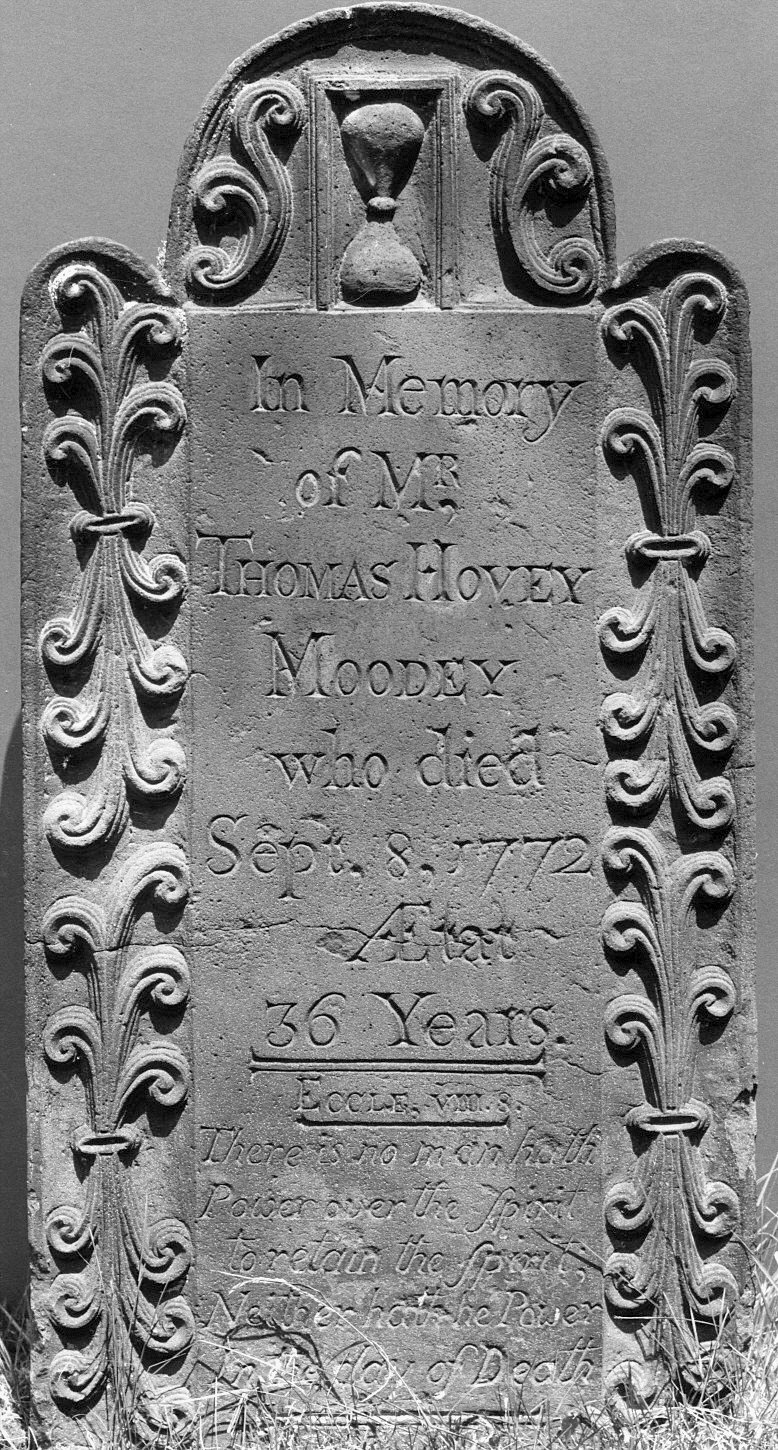 In Memory
of Mr.
THOMAS HOVEY
MOODEY
who died
Sept. 8. 1772
Ætat
36 Years.
ECCLE. VIII. 8.
There is no man hath
Power over the Spirit
to retain the Spirit;
Neither hath he Power
In the day of Death